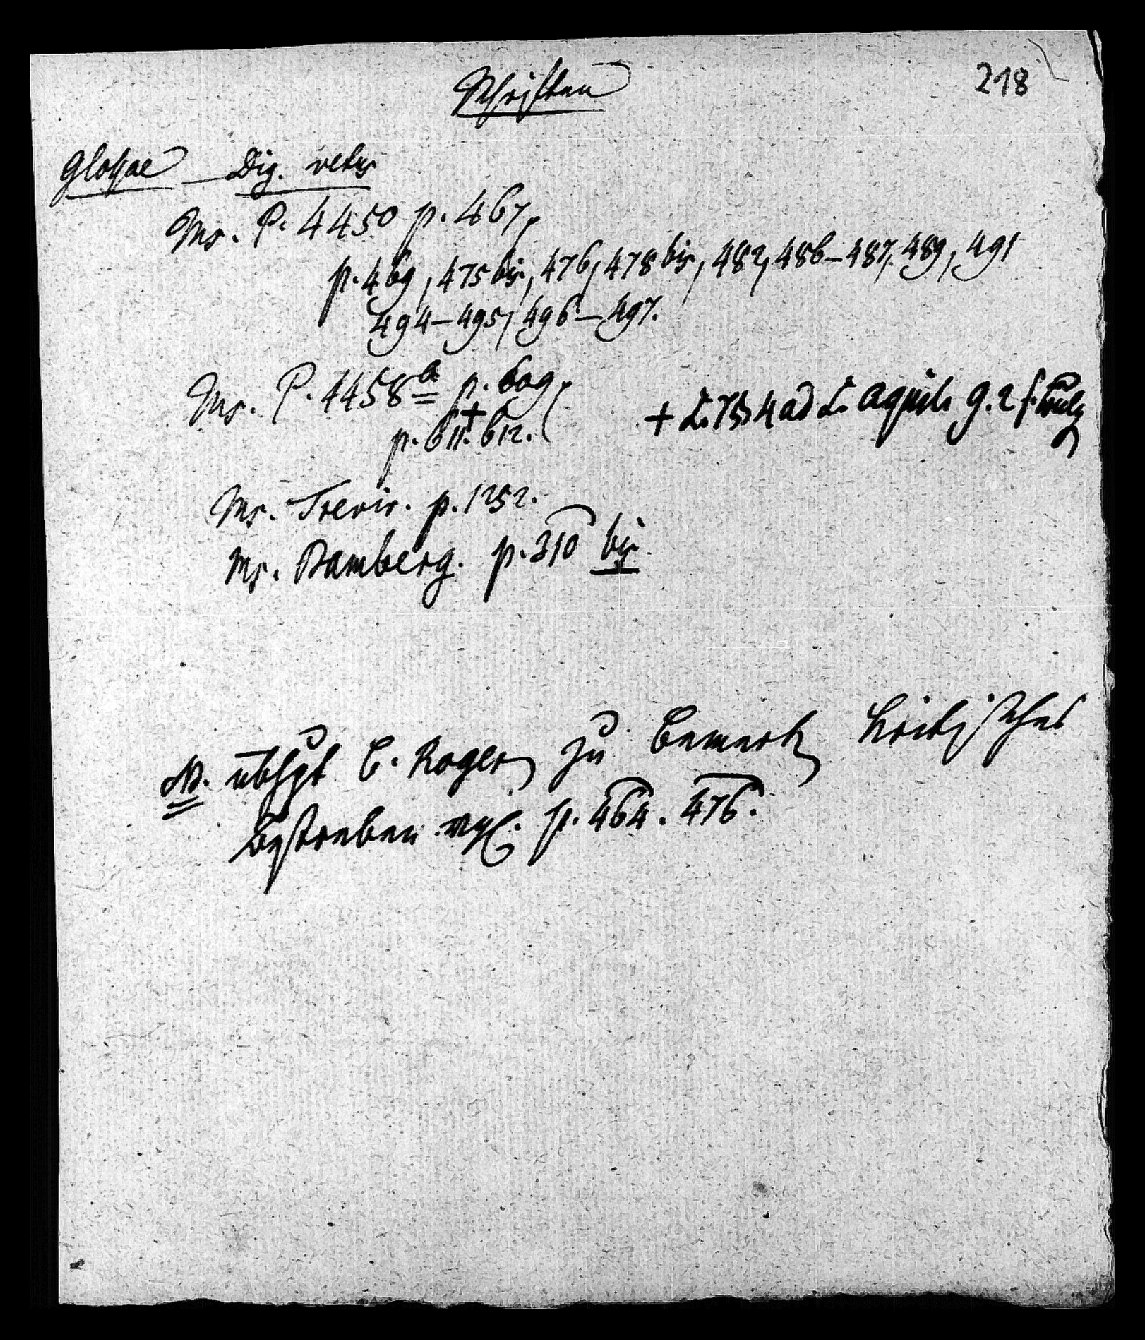 218
Schriften
Glossae — Dig. vetus
Ms. P. 4450 p. 467,
p. 469, 475 bis, 476, 478 bis, 482, 486–487, 489, 491
494–495, 496–497.
Ms. P. 4458a p. 609,
p. 611. + 612.
+ L. 4 ad L. aquil. 9. 2
Ms. Trevir. p. 1252.
Ms. Bamberg. p. 310 bis
NB. Roger zu kritisches
Bestreben vgl. p. 464. 476.